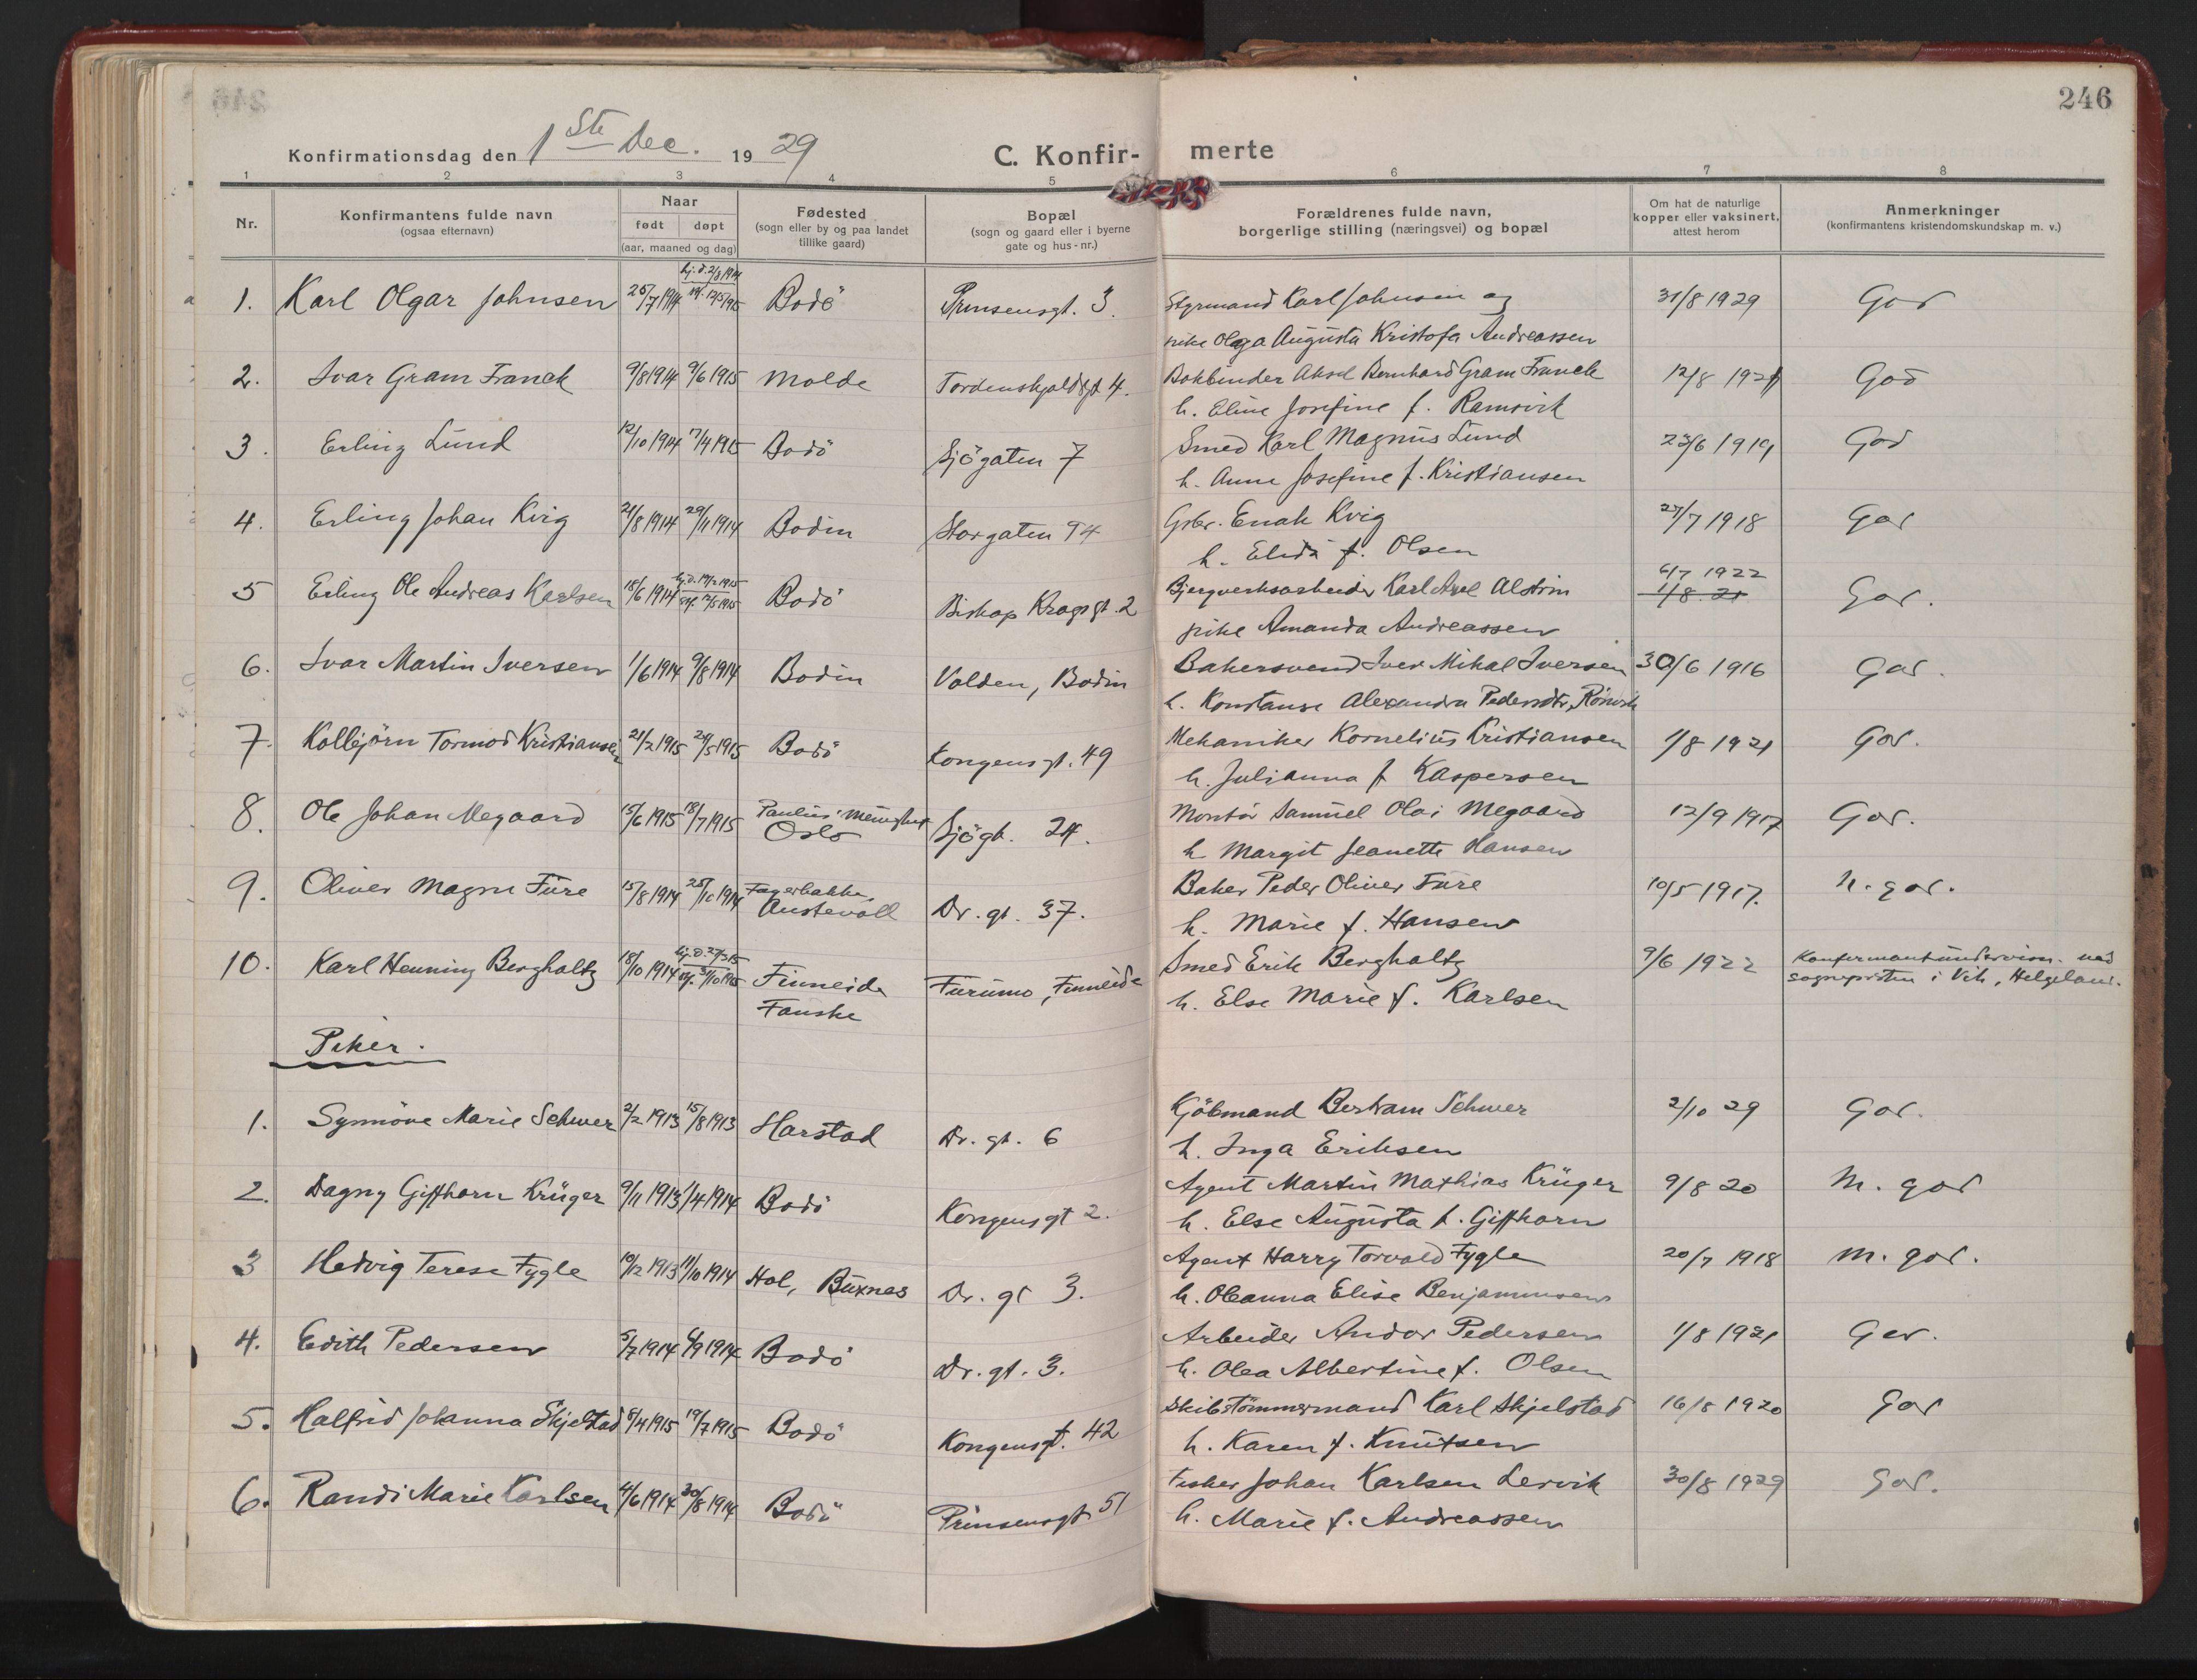 246
Konfirmationsdag den 1ste Dec. 1929
C. Konfirmerte
1 2 3 4 5 6 7 8
Nr.
Konfirmantens fulde navn
(ogsaa efternavn)
Naar
født døpt
(aar, maaned og dag)
Fødested
(sogn eller by og paa landet
tillike gaard)
Bopæl
(sogn og gaard eller i byerne
gate og hus-nr.)
Forældrenes fulde navn,
borgerlige stilling (næringsvei) og bopæl
Om hat de naturlige
kopper eller vaksinert,
attest herom
Anmerkninger
(konfirmantens kristendomskundskap m. v.)
1. Karl Olgar Johnsen 25/7 1914 hj. d. 2/8 1914 Bodö Prinsensgt. 3. Styrmand Karl Johnsen og 31/8 1929 God
pike Olga Augusta Kristofa Andreassen
2. Ivar Gram Franck 9/8 1914 9/6 1915 Molde Tordenskjoldsgt 4. Bokbinder Aksel Bernhard Gram Franck 12/8 1921 God
h. Eline Josefine f. Ramsvik
3. Erling Lund 12/10 1914 7/4 1915 Bodö Sjögaten 7 Smed Karl Magnus Lund 23/6 1919 God
h. Anne Josefine f. Kristiansen
4. Erling Johan Kvig 21/8 1914 29/11 1914 Bodin Storgaten 94 Grbr. Enok Kvig 27/7 1918 God
h. Elida f. Olsen
5 Erling Ole Andreas Karlsen 18/6 1914 hj. d. 14/2 1915 Bodö Biskop Kragsgt. 2 Bjergverksarbeider Karl Axel Alström 6/7 1922 God.
1/8. 21
pike Amanda Andreassen
6. Ivar Martin Iversen 1/6 1914 9/8 1914 Bodin Volden, Bodin Bakersvend Iver Mikal Iversen 30/6 1916 God.
h. Konstanse Alexandra Pedersdtr, Rönvik
7. Kolbjörn Tormod Kristiansen 21/2 1915 24/5 1915 Bodö Kongensgt. 49 Mekaniker Kornelius Kristiansen 1/8 1921 God.
h. Julianna f Kaspersen
8. Ole Johan Megaard 15/6 1915 18/7 1915 Paulus' Menighet Oslo Sjögt. 24. Montör Samuel Olai Megaard 12/9 1917 God.
h Margit Jeanette Hansen
9. Oliver Magne Fure 15/8 1914 25/10 1914 Fagerbakke, Austevoll Dr. gt. 37. Baker Peder Oliver Fure 10/5 1917. n. god.
h. Marie f. Hansen
10. Karl Henning Bergholtz 18/10 1914 Finneide Fauske Furumo, Finneide Smed Erik Bergholtz 9/6 1922 Konfirmantundervisn. ved
sognepresten i Vik, Helgeland.
h. Else Marie f. Karlsen
Piker.
1. Synnöve Marie Schwer 2/2 1913 15/8 1913 Harstad Dr. gt. 6 Kjöbmand Bertram Schwer 2/10 29 God.
h. Inga Eriksen
2. Dagny Giffhorn Krüger 9/11 1913 1/4 1914 Bodö Kongensgt 2. Agent Martin Mathias Krüger 9/8 20 M. god
h. Else Augusta f. Giffhorn
3 Hedvig Terese Fygle 10/12 1913 11/10 1914 Hol, Buxnes Dr. gt 3. Agent Harry Torvald Fygle 20/7 1918 M. god.
h. Oleanna Elise Benjaminsen
4. Edith Pedersen 5/7 1914 6/9 1914 Bodö Dr. gt. 3. Arbeider Andor Pedersen 1/8 1921 God.
h. Olea Albertine f. Olsen
5. Halfrid Johanna Skjelstad 8/4 1915 19/7 1915 Bodö Kongensgt. 42 Skibstömmermand Karl Skjelstad 16/8 1920 God
h. Karen f. Knutsen
6. Randi Marie Karlsen 4/6 1914 30/8 1914 Bodö Prinsensgt 51 Fisker Johan Karlsen Lervik 30/8 1929 God.
h. Marie f. Andreassen